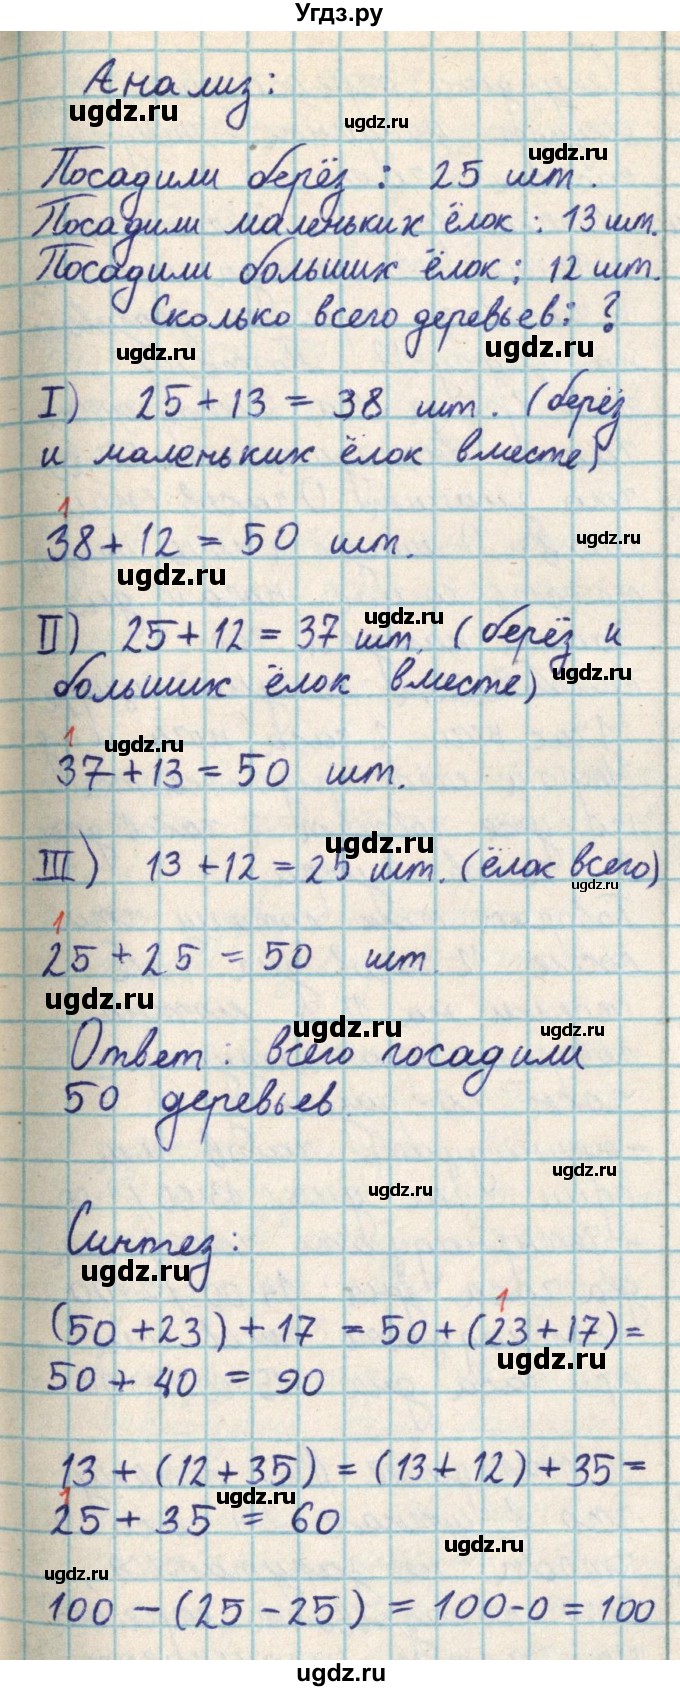 Угдз.ру
Анализ:
ugdz.ru
ugdz.ru
ugdz.ru
Посадили берёз : 25 шт.
Посадили маленьких ёлок : 13 шт.
Посадили больших ёлок : 12 шт.
Сколько всего деревьев: ?
ugdz.ru
ugdz.ru
I) 25 + 13 = 38 шт. (берёз
и маленьких ёлок вместе)
1
38 + 12 = 50 шт.
ugdz.ru
ugdz.ru
ugdz.ru
II) 25 + 12 = 37 шт. (берёз и
больших ёлок вместе)
ugdz.ru
1
ugdz.ru
37 + 13 = 50 шт.
ugdz.ru
III) 13 + 12 = 25 шт. (ёлок всего)
ugdz.ru
1
25 + 25 = 50 шт.
ugdz.ru
ugdz.ru
ugdz.ru
Ответ : всего посадили
50 деревьев.
ugdz.ru
ugdz.ru
Синтез :
ugdz.ru
1
(50 + 23) + 17 = 50 + (23 + 17) =
ugdz.ru
50 + 40 = 90
13 + (12 + 35) = (13 + 12) + 35 =
1
ugdz.ru
25 + 35 = 60
ugdz.ru
ugdz.ru
100 - (25 - 25) = 100 - 0 = 100
ugdz.ru